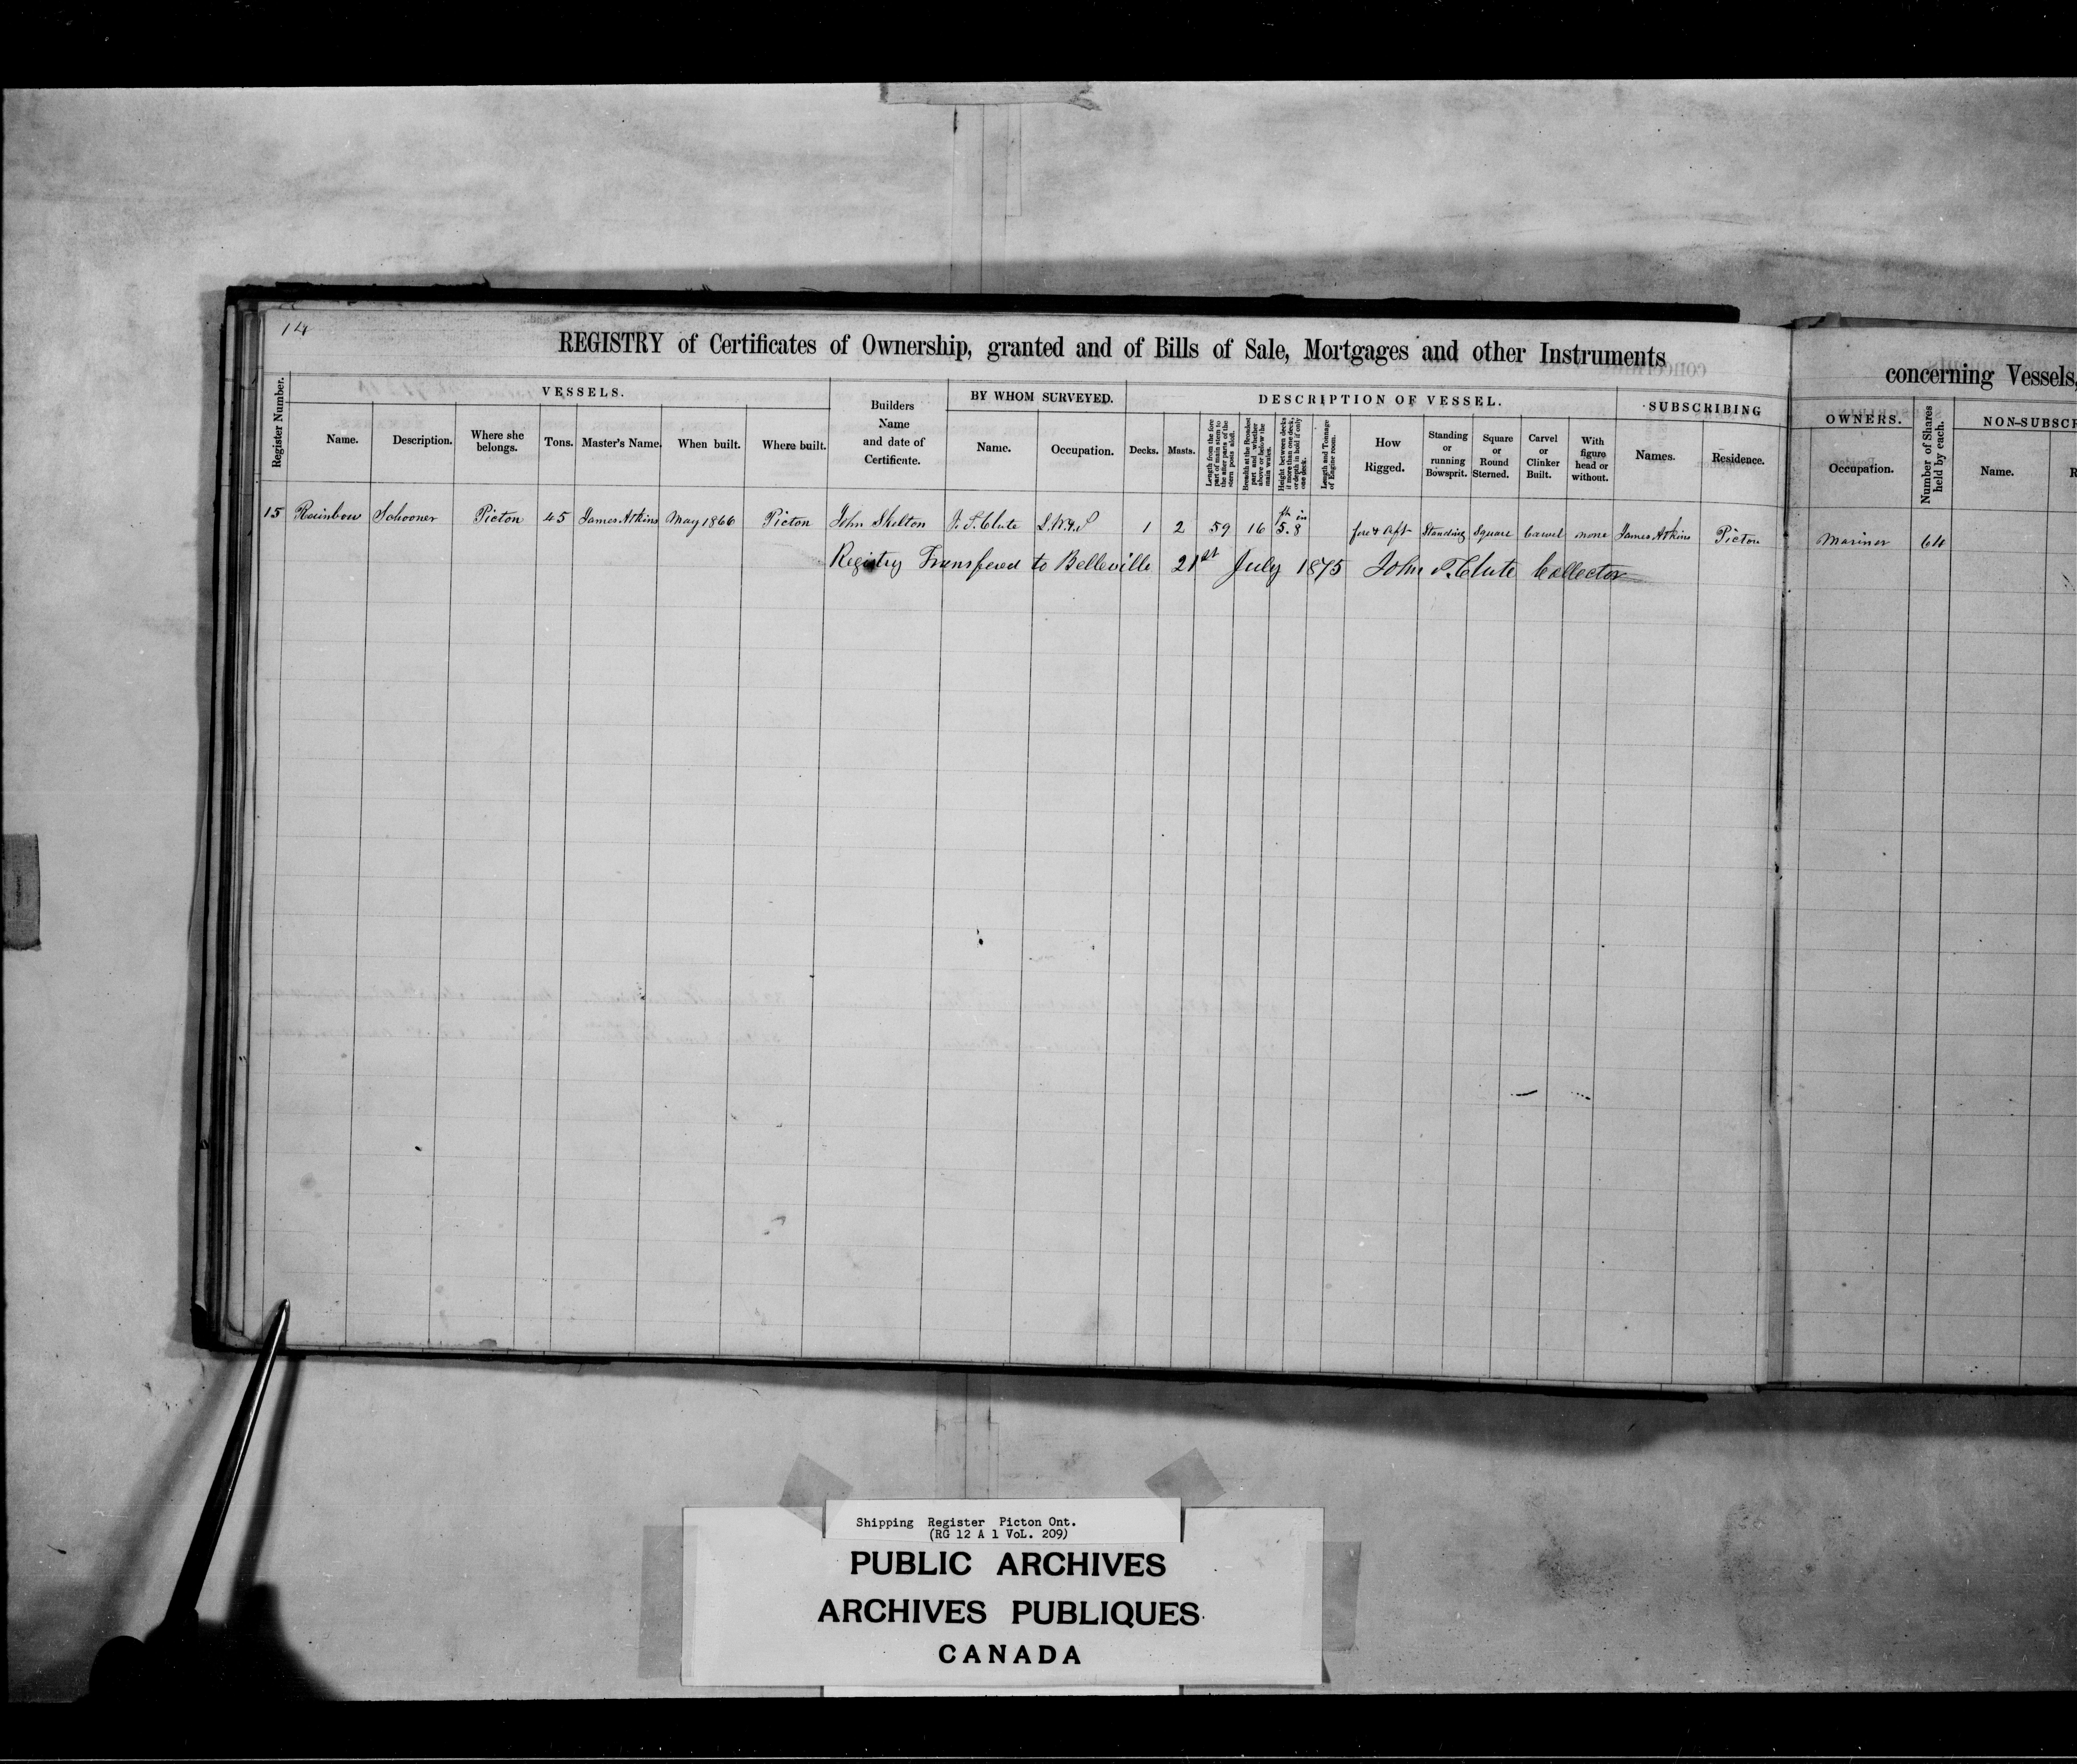 14
REGISTRY of Certificates of Ownership, granted and of Bills of Sale, Mortgages and other Instruments
concerning Vessels,
Register Number.
VESSELS.
Name.
Description.
Where she belongs.
Tons.
Master's Name.
When built.
Where built.
Builders
Name
and date of
Certificate.
BY WHOM SURVEYED.
Name.
Occupation.
DESCRIPTION OF VESSEL.
Decks.
Masts.
Length from the fore part of main stem to the after parts of the stern posts aloft.
Breadth at the Broadest part and whether above or below the main wales.
Height between decks if more than one deck, or depth in hold if only one deck.
Length and Tonnage of Engine room.
How
Rigged.
Standing
or
running
Bowsprit.
Square
or
Round
Sterned.
Carvel
or
Clinker
Built.
With
figure
head or
without.
SUBSCRIBING
Names.
Residence.
OWNERS.
Occupation.
Number of Shares held by each.
NON-SUBSCR
Name.
R
15 Rainbow Schooner Picton 45 James Atkins May 1866 Picton John Shelton J. P. Clute 1 2 59 16 ft in 5.8 fore & Aft Standing Square Carvel none James Atkins Picton Mariner 64
Registry Transfered to Belleville 21st July 1875 John P. Clute Collector
Shipping Register Picton Ont.
(RG 12 A 1 VoL. 209)
PUBLIC ARCHIVES
ARCHIVES PUBLIQUES
CANADA